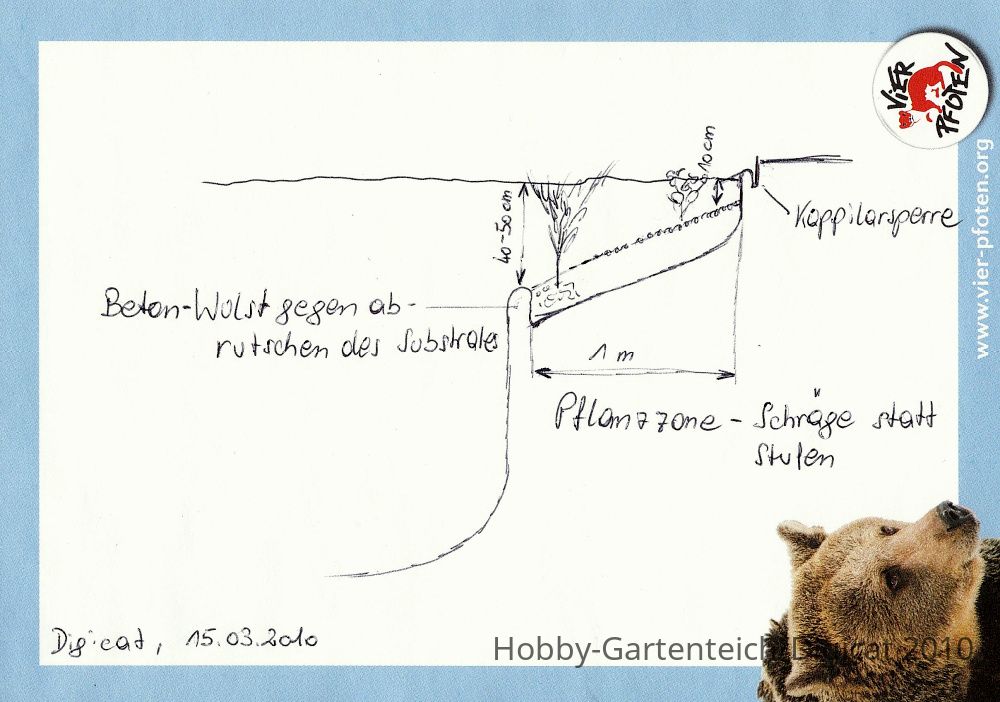 VIER
PFOTEN
www.vier-pfoten.org
10 cm
Kappilarsperre
40-50cm
Beton-Wulst gegen ab-
rutschen des Substrates
1 m
Pflanzzone - Schräge statt
Stufen
Digicat, 15.03.2010
Hobby-Gartenteich/Digicat 2010